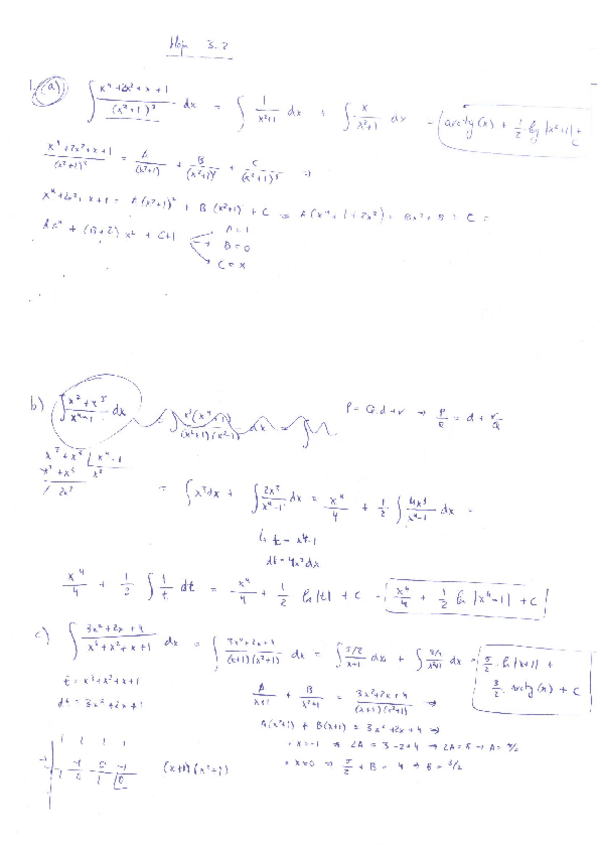 Hoja 3.2
1. (a) ∫ (x⁴+2x²+x+1)/(x²+1)² dx = ∫ 1/(x²+1) dx + ∫ x/(x²+1) dx = arctg(x) + 1/2 log |x²+1| + C
(x⁴+2x²+x+1)/(x²+1)³ = A/(x²+1) + B/(x²+1)² + C/(x²+1)³ ⇒
x⁴+2x²+x+1 = A(x²+1)² + B(x²+1) + C ⇒ A(x⁴+1+2x²) + Bx² + B + C =
Ax⁴ + (B+2)x² + C+1
A=1
B=0
C=x
b) ∫ (x⁷+x³)/(x⁴-1) dx
P=Q·d+r → P/Q = d + r/Q
= ∫ x³dx + ∫ 2x³/(x⁴-1) dx = x⁴/4 + 1/2 ∫ 4x³/(x⁴-1) dx =
t = x⁴-1
dt = 4x³dx
x⁴/4 + 1/2 ∫ 1/t dt = x⁴/4 + 1/2 ln|t| + C = x⁴/4 + 1/2 ln |x⁴-1| + C
c) ∫ (3x²+2x+4)/(x³+x²+x+1) dx = ∫ (3x²+2x+4)/((x+1)(x²+1)) dx = ∫ (5/2)/(x+1) dx + ∫ (3/2)/(x²+1) dx = 5/2 ln|x+1| + 3/2 arctg(x) + C
t = x³+x²+x+1
dt = 3x²+2x+1
A/(x+1) + B/(x²+1) = (3x²+2x+4)/((x+1)(x²+1)) ⇒
A(x²+1) + B(x+1) = 3x²+2x+4 ⇒
x=-1 ⇒ 2A = 3-2+4 → 2A=5 → A=5/2
x=0 ⇒ 5/2 + B = 4 → B = 3/2
(x+1)(x²+1)